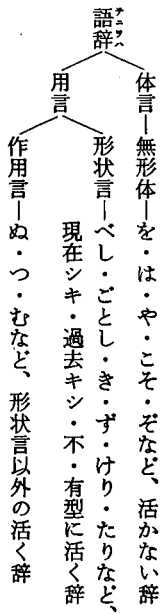 語辞
テニヲハ
体言―無形体―を・は・や・こそ・ぞなど、活かない辞
用言
形状言―べし・ごとし・き・ず・けり・たりなど、
現在シキ・過去キシ・不・有型に活く辞
作用言―ぬ・つ・むなど、形状言以外の活く辞